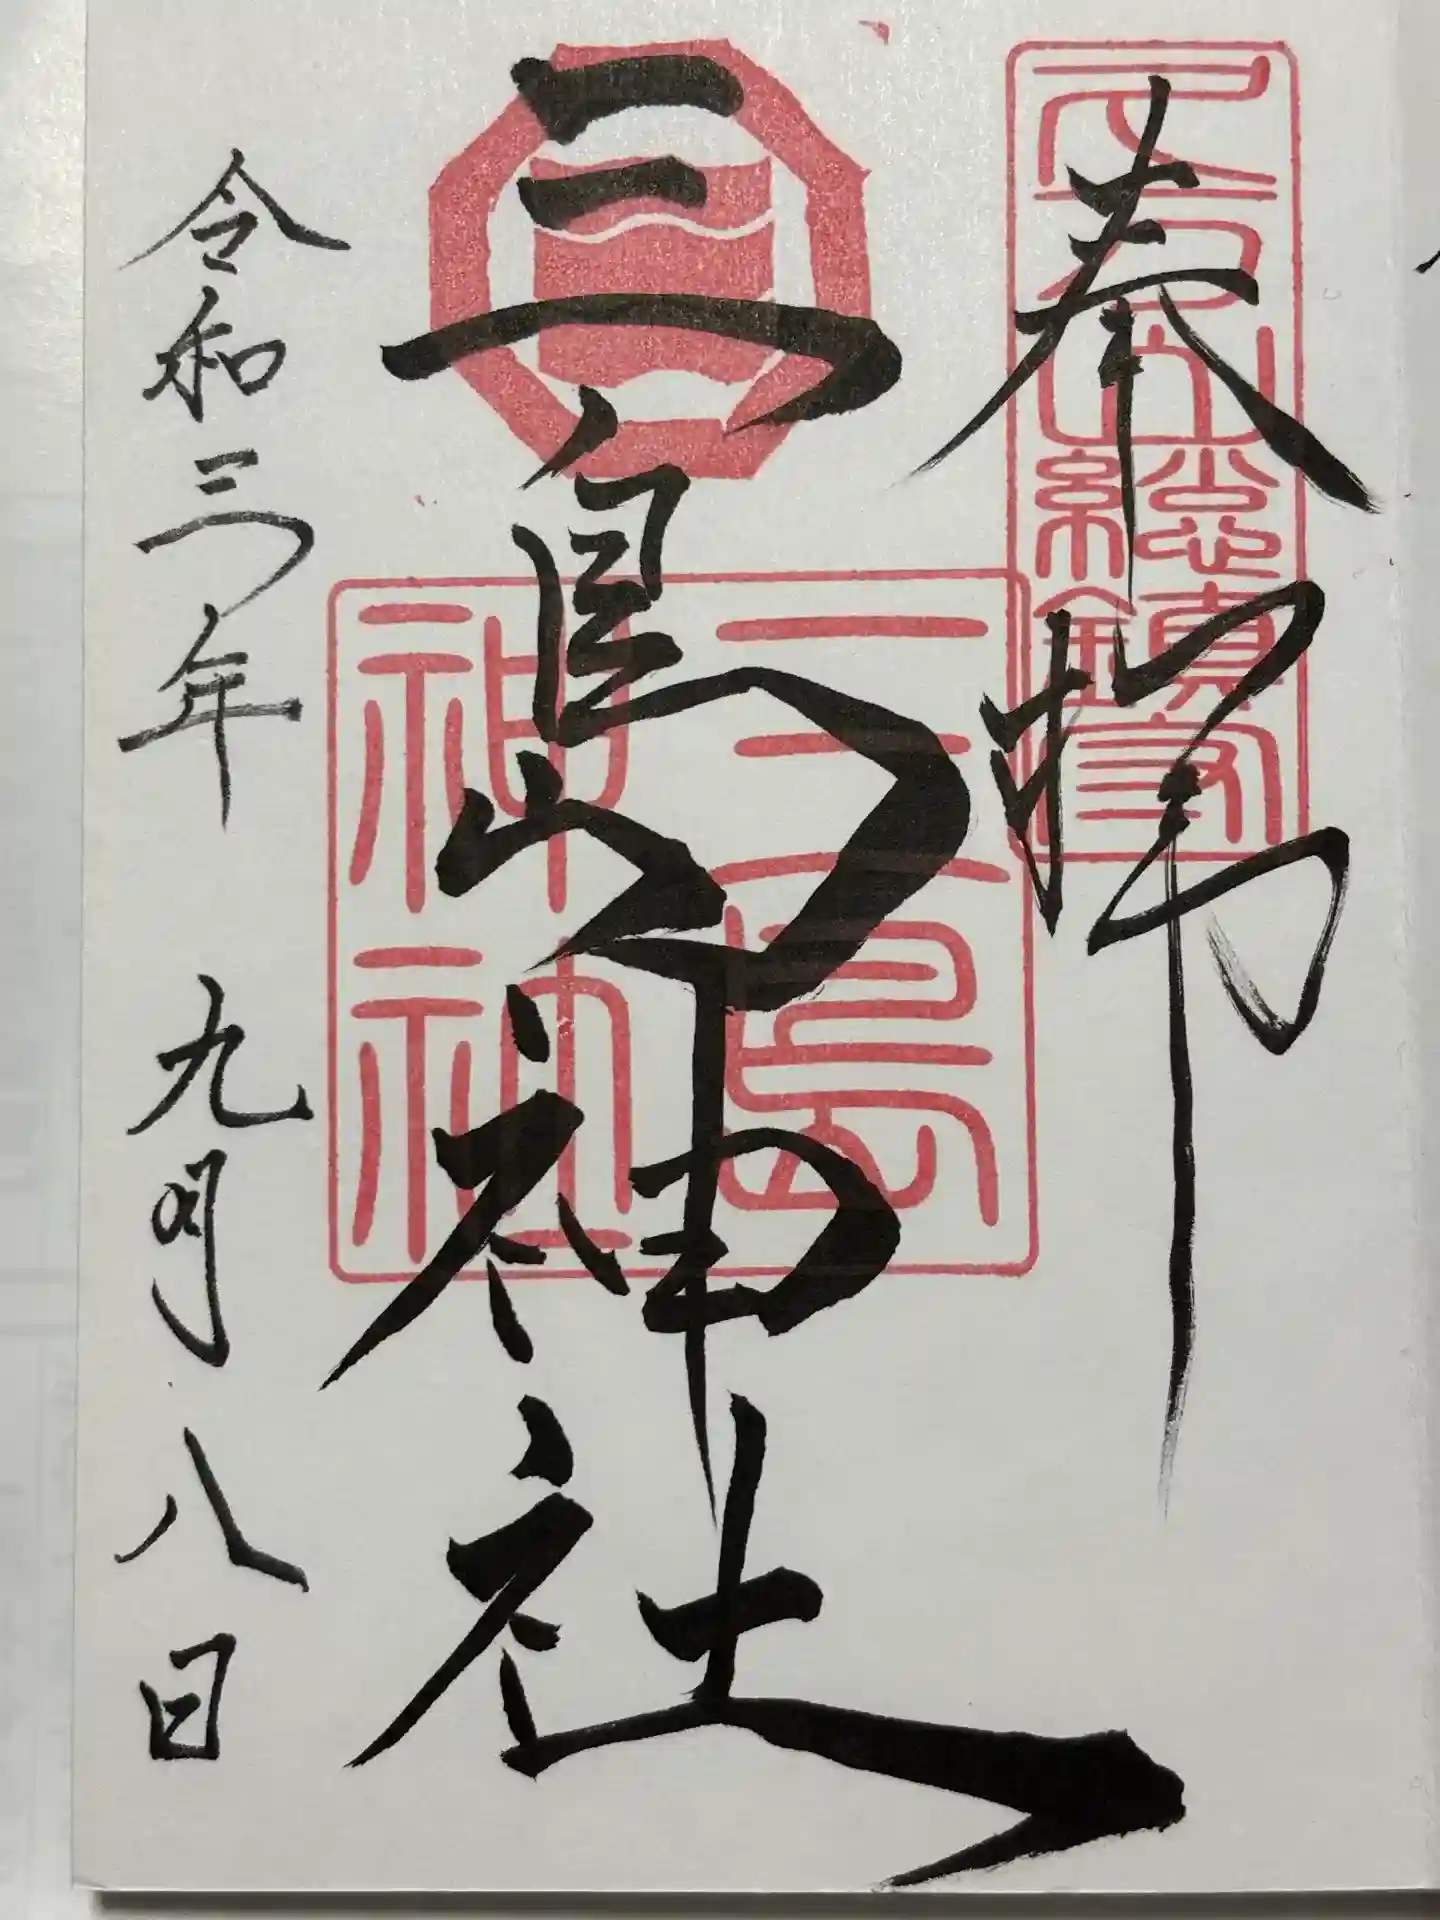 奉拝
総鎮守
三島神社
三島
神社
令和三年 九月八日